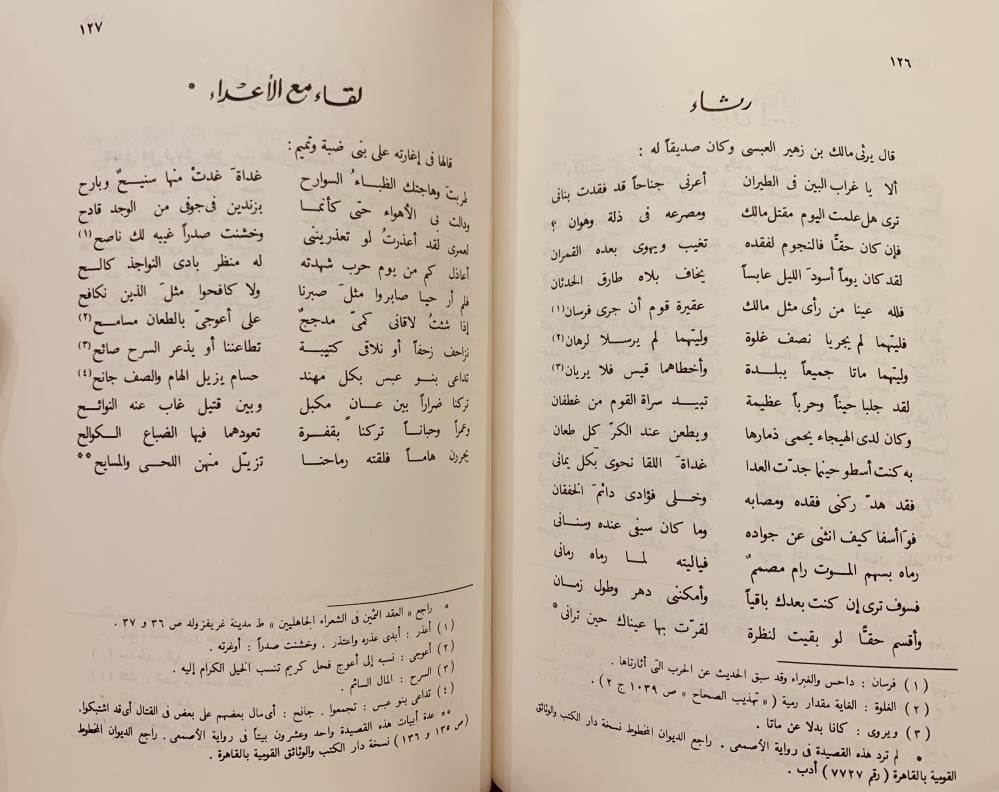 ١٢٦
رثاء
قال يرثى مالك بن زهير العبسى وكان صديقاً له :
ألا يا غراب البين فى الطيران أعرنى جناحاً قد فقدت بنانى
ترى هل علمت اليوم مقتل مالك ومصرعه فى ذلة وهوان ؟
فإن كان حقًّا فالنجوم لفقده تغيب ويهوى بعده القمران
لقد كان يوماً أسودَ الليل عابساً يخاف بلاه طارق الحدثان
فلله عينا من رأى مثل مالك عقيرة قوم أن جرى فرسان(١)
فليتهما لم يجريا نصف غلوة وليتهما لم يرسلا لرهان(٢)
وليتهما ماتا جميعاً ببلدة وأخطاهما قيس فلا يريان(٣)
لقد جلبا حيناً وحرباً عظيمة تبيد سراة القوم من غطفان
وكان لدى الهيجاء يحمى ذمارها ويطعن عند الكرّ كل طعان
به كنت أسطو حينما جدّت العدا غداةَ اللقا نحوى بكل يمانى
فقد هدّ ركنى فقده ومصابه وخلى فؤادى دائمَ الخفقان
فوَاأسفا كيف انثنى عن جواده وما كان سيفى عنده وسنانى
رماه بسهم الموت رام مصممٌ فياليته لما رماه رمانى
فسوف ترى إن كنت بعدك باقياً وأمكننى دهر وطول زمان
وأقسم حقًّا لو بقيت لنظرة لقرّت بها عيناك حين ترانى *
(١) فرسان : داحس والغبراء وقد سبق الحديث عن الحرب التى أثارتاها .
(٢) الغلوة : الغاية مقدار رمية ( « تهذيب الصحاح » ص ١٠٣٩ ج ٢ ) .
(٣) ويروى : كانا بدلا عن ماتا .
* لم ترد هذه القصيدة فى رواية الأصمعى . راجع الديوان المخطوط نسخة دار الكتب والوثائق
القومية بالقاهرة ( رقم ٧٧٢٧ ) أدب .
١٢٧
لقاء مع الأعداء *
قالها فى إغارته على بنى ضبة وتميم :
طربتَ وهاجتك الظباءُ السوارح غداةَ غدتْ منها سنيحٌ وبارح
ودالت بى الأهواء حتى كأنما بزندين فى جوفى من الوجد قادح
لعمرى لقد أعذرتُ لو تعذريننى وخشنت صدراً غيبه لك ناصح(١)
أعاذل كم من يوم حرب شهدته له منظر بادى النواجذ كالح
فلم أر حيا صابروا مثلَ صبرنا ولا كافحوا مثلَ الذين نكافح
إذا شئتُ لاقانى كمىّ مدججٌ على أعوجىّ بالطعان مسامح(٢)
نزاحف زحفاً أو نلاقى كتيبة تطاعننا أو يذعر السرح صائح(٣)
تداعى بنو عبس بكل مهند حسام يزيل الهام والصف جانح(٤)
تركنا ضراراً بين عان مكبل وبين قتيل غاب عنه النوائح
وعمراً وحباناً تركنا بقفرة تعودهما فيها الضباع الكوالح
يجررن هاماً فلقته رماحنا تزيّل منهن اللحى والمسايح**
* راجع « العقد الثمين فى الشعراء الجاهليين » ط مدينة غريفزولد ص ٣٦ و ٣٧ .
(١) أعذر : أبدى عذره واعتذر . وخشنت صدراً : أوغرته .
(٢) أعوجى : نسبه إلى أعوج فحل كريم تنسب الخيل الكرام إليه .
(٣) السرح : المال السائم .
(٤) تداعى بنو عبس : تجمعوا . جانح : أى مال بعضهم على بعض فى القتال أى قد اشتبكوا.
** عدة أبيات هذه القصيدة واحد وعشرون بيتاً فى رواية الأصمعى . راجع الديوان المخطوط
(ص ١٣٥ و ١٣٦) نسخة دار الكتب والوثائق القومية بالقاهرة .